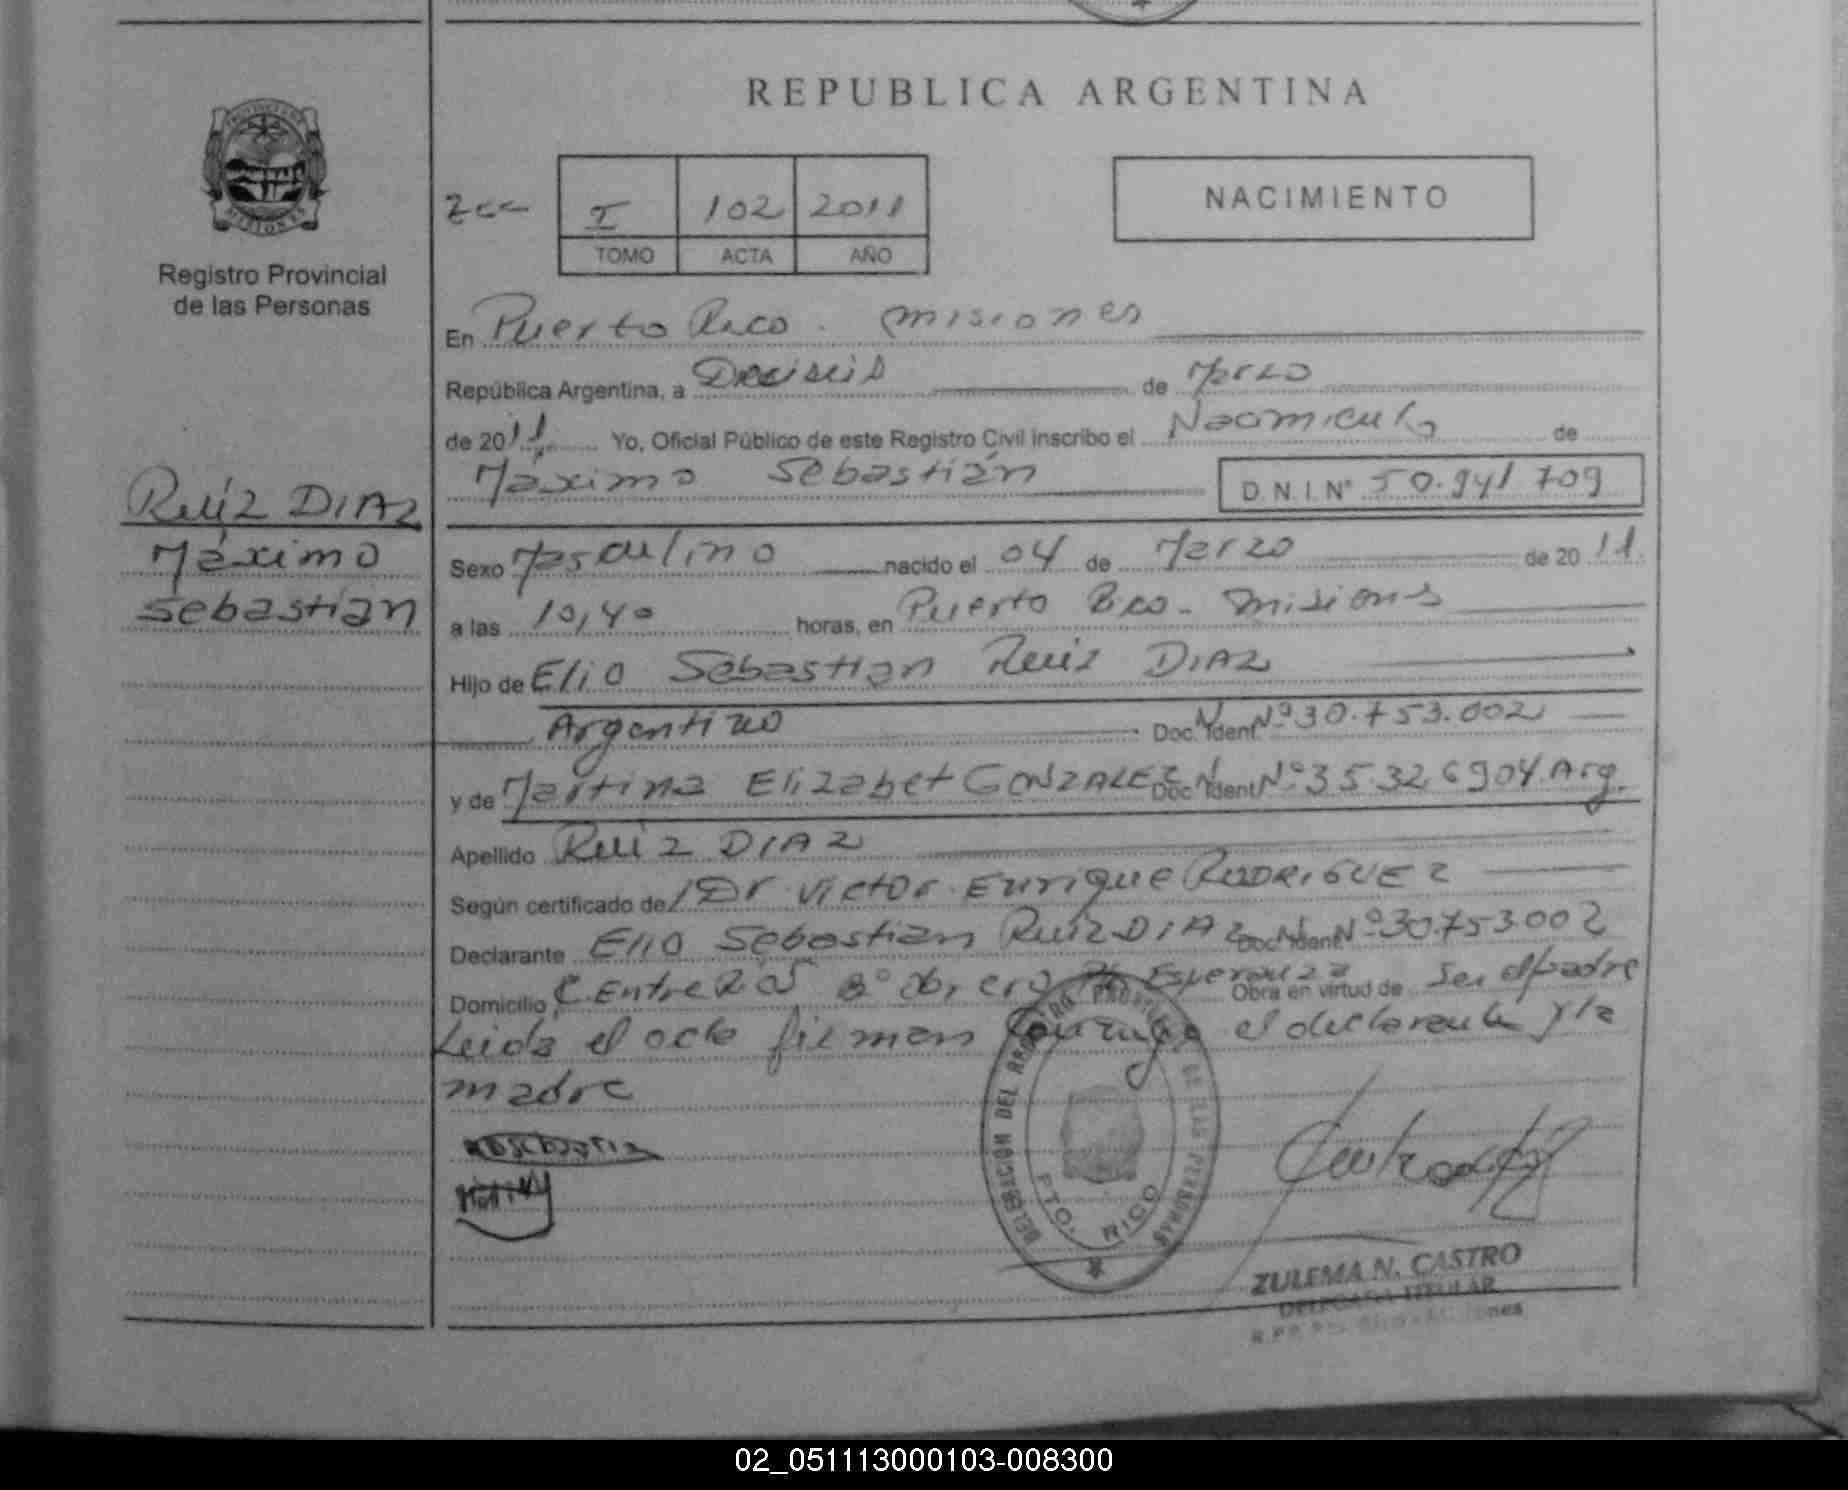 REPUBLICA ARGENTINA
I 102 2011
TOMO ACTA AÑO
NACIMIENTO
PROVINCIA DE MISIONES
Registro Provincial
de las Personas
Ruiz DIAZ
Máximo
Sebastián
En Puerto Rico. Misiones
República Argentina, a Dieciseis de Marzo
de 2011 Yo, Oficial Público de este Registro Civil inscribo el Nacimiento de
Máximo Sebastián D.N.I.Nº 50.941 709
Sexo Masculino nacido el 04 de Marzo de 2011
a las 10,40 horas, en Puerto Rico - Misiones
Hijo de Elio Sebastian Ruiz DIAZ
Argentino Doc. Ident Nº 30.753.002
y de Martina Elizabet GONZALEZ Doc. Ident Nº 35.326904 Arg.
Apellido Ruiz DIAZ
Según certificado del Dr. Victor Enrique RODRIGUEZ
Declarante Elio Sebastian Ruiz DIAZ Doc. Ident Nº 30753002
Domicilio C. Entre Rios Bº Obrero Esperanza Obra en virtud de Ser el padre
Leida el acta firman conmigo el declarante y la
madre
DELEGACION DEL REGISTRO PROVINCIAL DE LAS PERSONAS
PTO. RICO
ZULEMA N. CASTRO
DELEGADA TITULAR
R.P.P. Pto. Rico - Misiones
02_051113000103-008300